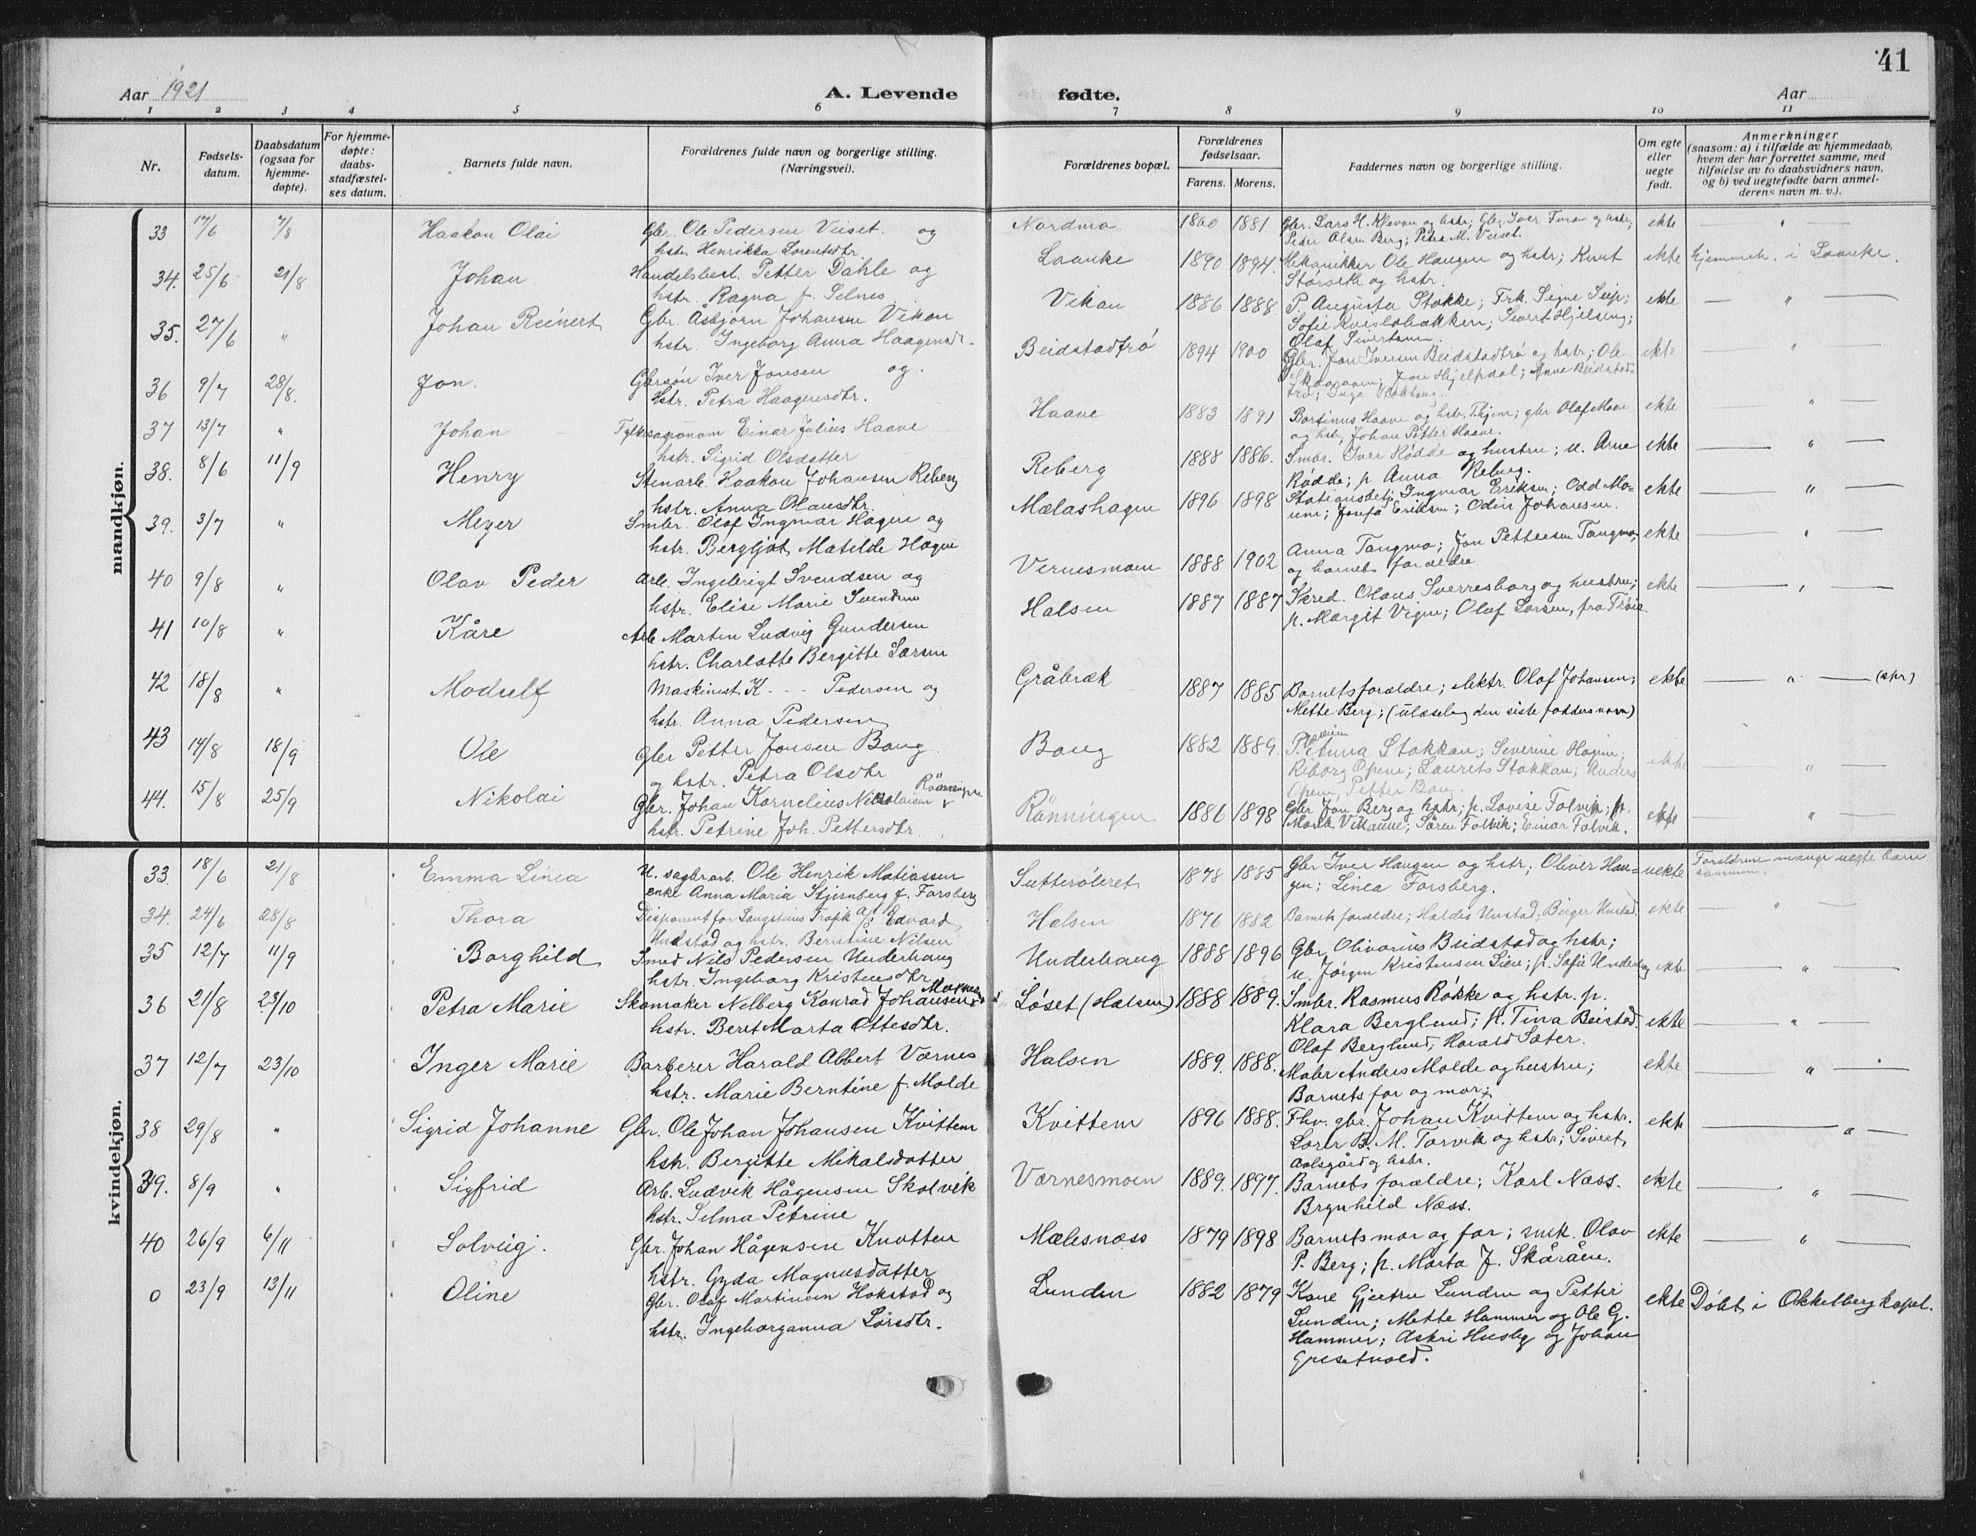 41
Aar 1921 A. Levende fødte. Aar
1 2 3 4 5 6 7 8 9 10 11
Nr. Fødsels-datum. Daabsdatum (ogsaa for hjemme-døpte). For hjemme-døpte: daabs-stadfæstel-ses datum. Barnets fulde navn. Forældrenes fulde navn og borgerlige stilling. (Næringsvei). Forældrenes bopæl. Forældrenes fødselsaar. Farens. Morens. Faddernes navn og borgerlige stilling. Om egte eller uegte født. Anmerkninger (saasom: a) i tilfælde av hjemmedaab, hvem der har forrettet samme, med tilføielse av to daabsvidners navn, og b) ved uegtefødte barn anmel-derens navn m. v.).
mandkjøn.
33 17/6 7/8 Haakon Olai Gbr. Ole Pedersen Veiset og Nordmo 1860 1881 Gbr. Lars H. Klevan og hstr; Gbr. Iver og hstr; ekte "
hstr. Henrikka Lorentsdtr. Peder Olsen Berg; Petra M. Veiset.
34. 25/6 21/8 Johan Handelsbest. Petter Dahle og Laanke 1890 1894. Mekanikker Ole Haugen og hstr; Knut ekte hjemmeh. i Laanke.
hstr. Ragna f. Selnes Størseth og hstr.
35. 27/6 " Johan Reinert Gbr. Asbjørn Johansen Vikan Vikan 1886 1888. P. Augusta Stokke; Frk. Signe ekte "
hstr. Ingeborg Anna Haagensdtr. Sofie Kvislabakken; Sivert Hjelseng;
Olaf Sivertsen.
36 9/7 28/8. Jon. Gbrsøn Iver Jonsen og Beidstadtrø 1894 1900 Gbr. Jon Iversen Beidstadtrø og hstr; Ole ekte "
hstr. Petra Haagensdtr. Jon Hjelpdal; Anne Beidstad-
trø; Inga
37 13/7 " Johan Fylkesagronom Einar Julius Haave Haave 1883 1891 Bortinus Haave og hstr. Thjem; gbr Olaf Moen ekte "
hstr. Sigrid Olsdatter og hstr, Johan Petter Haave.
38. 8/6 11/9 Henry Stenarb. Haakon Johansen Reberg Reberg 1888 1886. Smbr. Iver Rødde og hustru; u. Arne ekte "
hstr. Anna Olausdtr. Rødde; p. Anna Reberg.
39. 3/7 " Meyer Smbr. Olaf Ingmar Hagen og Mælashagen 1896 1898 Stationsbetj. Ingmar Eriksen; Odd Mo- ekte "
hstr. Bergljot Matilde Hagen Josefa Eriksen; Odin Johansen.
40 9/8 " Olav Peder Arb. Ingebrigt Svendsen og Vernesmoen 1888 1902 Anna Tangmo; Jon Pettersen Tangmo, ekte "
hstr. Elise Marie Svendsen og barnets forældre
41 10/8 " Kåre Arb Martin Ludvig Gundersen Halsen 1887 1887 Skred. Olaus Sverresborg og hustru; ekte "
hstr. Charlotte Bergitte Larsen p. Margit Vigen; Olaf Larsen, fra Trøia.
42 18/8 " Modulf Maskinest K - - - Pedersen og Gråbræk 1887 1885 Barnets forældre; elektr. Olaf Johansen; ekte " (str)
hstr. Anna Pedersen Mette Berg; (ulæselig den siste fadders navn)
43 14/8 18/9 Ole Gbr Petter Jonsen Bang Bang 1882 1889. P. Anna Stokkan; Severine Hagen; ekte "
og hstr. Petra Olsdtr Reborg Opem; Laurits Stokkan; Anders
Opem; Petter Bang.
44. 15/8 25/9 Nikolai Gbr. Johan Kornelius Nikolaisen Rønningen Rønningen 1886 1898 Gbr Jon Berg og hstr; p. Lovise Folvik; p. ekte "
hstr. Petrine Joh. Pettersdtr. Marit Vikanne; Søren Folvik; Einar Folvik.
kvindekjøn.
33. 18/6 21/8 Emma Linea U. sagbr.arb. Ole Henrik Matiassen 1878 1885 Gbr Iver Haugen og hstr; Oliver Hau- uekte Foreldrene mange uegte barn
enke Anna Maria Stjernberg f. Forsberg gen; Linea Forsberg. sammen.
34. 24/6 28/8 Thora Disponent for Langsteins Trafik a/s Edvard Halsen 1876 1882 Barnets forældre; Haldis Unstad; Birger Unstad. ekte "
Unstad og hstr. Berntine Nilsen
35 12/7 11/9 Borghild Smed Nils Pedersen Underhaug Underhaug 1888 1896 Gbr. Olivarius Beidstad og hstr; ekte "
hstr. Ingeborg Kristensdtr. u. Jørgen Kristensen Lien; p. Sofie Underhaug
36 21/8 23/10 Petra Marie Skomaker Nelberg Konrad Johansen Løset (Halsen) 1888 1889. Smbr. Rasmus Røkke og hstr. p. ekte "
hstr. Beret Marta Ottesdtr. Klara Berglund; p. Tina Beistad
Olaf Berglund; Harald Sæter.
37 12/7 23/10 Inger Marie Barberer Harald Albert Værnes Halsen 1889. 1888. Malr Anders Molde og hustru; ekte "
hstr. Marie Berntine f. Molde Barnets far og mor.
38 29/8 " Sigrid Johanne Gbr. Ole Johan Johansen Kvittem Kvittem 1896 1888. Fhv. gbr. Johan Kvittem og hstr. ekte "
hstr. Bergitte Mikalsdatter Lærer B. M. Torvik og hstr; Sivert
Aalsgård og hstr.
39. 8/9 " Sigfrid Arb. Ludvik Hågensen Skolvik Værnesmoen 1889. 1897. Barnets forældre; Karl Næss. ekte "
hstr. Selma Petrine Brynhild Næss.
40 26/9 6/11 Solveig. Gbr. Johan Hågensen Knotten Mælesnæss 1879 1898 Barnets mor og far; snik. Olav ekte "
hstr. Gyda Magnusdatter P. Berg; p. Marta J. Skåråen.
0 23/9 13/11 Oline Gbr. Olaf Martinsen Hokstad og Lunden 1882 1879 Kone Gjertru Lunden og Petter ekte Døbt i Okkelberg kapel.
hstr. Ingeborganna Larsdtr. Lunden; Mette Hammer og Ole G.
Hammer; Askri Husby og Johan
Gresetvold.